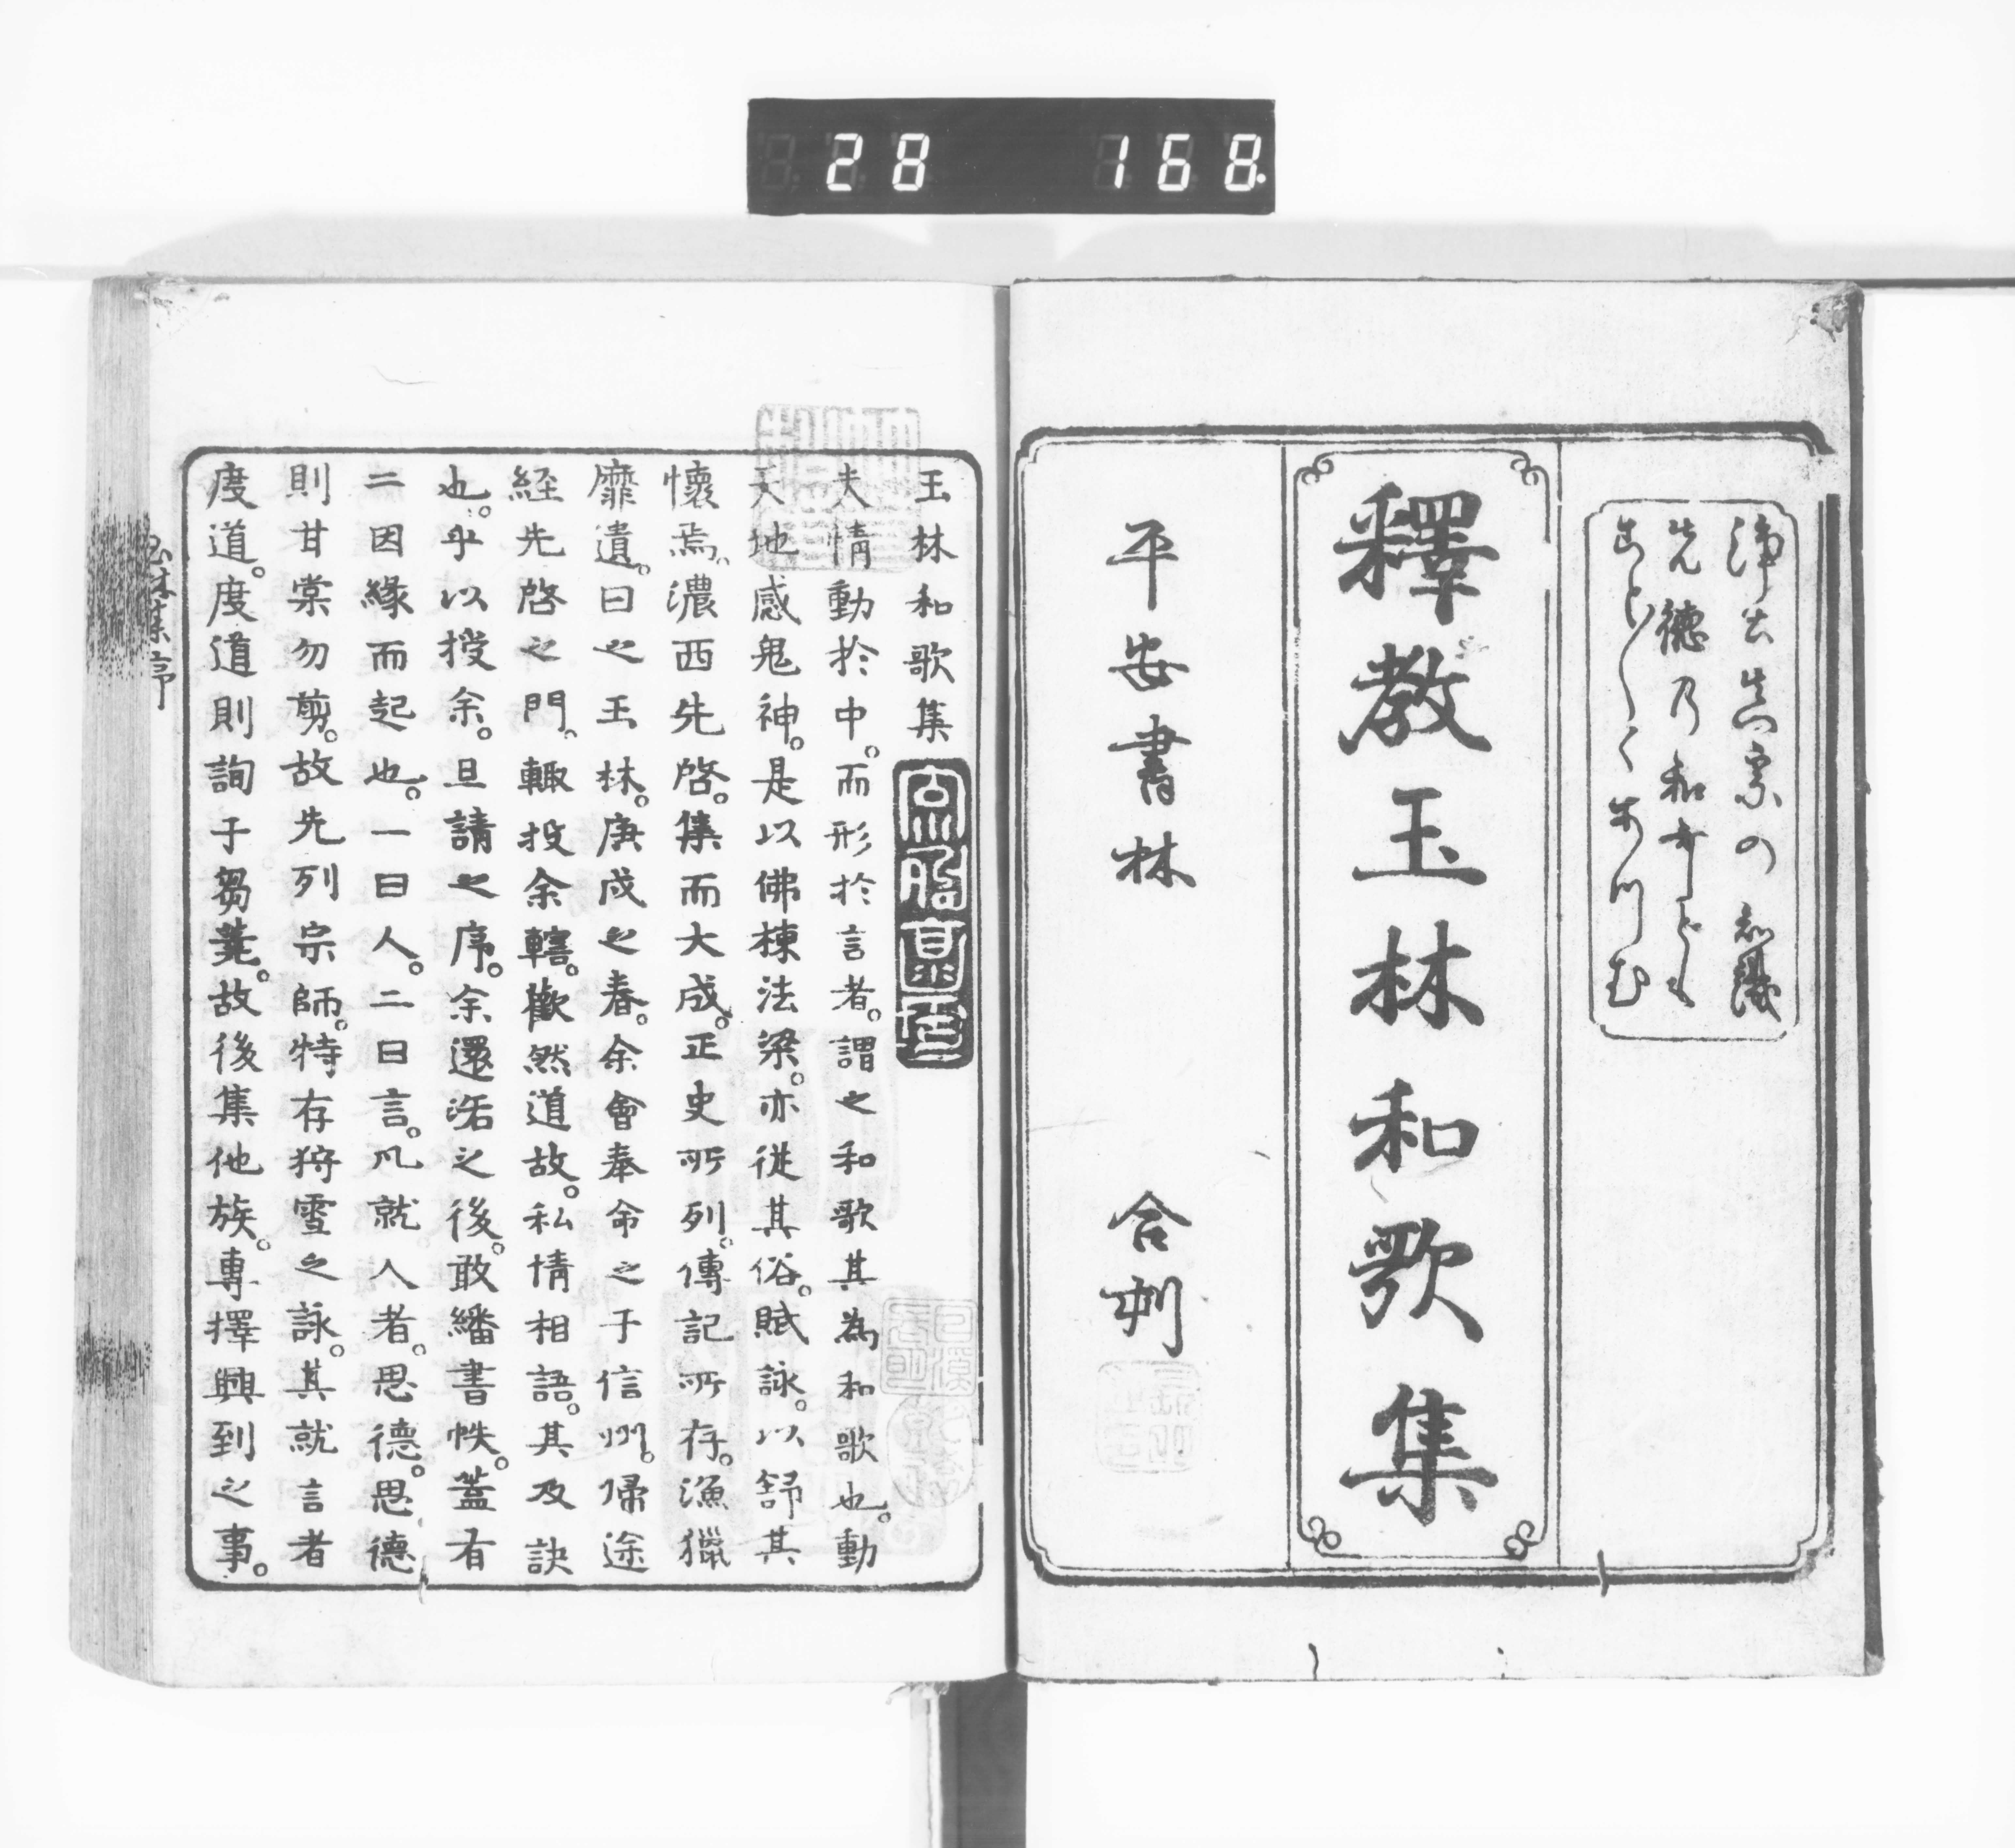 28 168.
浄土真宗の知識
先徳乃和哥とも
こと〲くあつむ
釋教玉林和歌集
平安書林 合刻
玉林和歌集
夫情動於中。而形於言者。謂之和歌其為和歌也。動
天地感鬼神。是以佛棟法梁。亦從其俗。賦詠。以舒其
懷焉。濃西先啓。集而大成。正史所列。傳記所存。漁獵
靡遺。曰之玉林。庚戌之春。余會奉命之于信州。歸途
経先啓之門。輙投余轄。歡然道故。私情相語。其及訣
也。乎以授余。且請之序。余還活之後。敢繙書帙。蓋有
二因緣而起也。一曰人。二曰言。凡就人者。思德。思德
則甘棠勿剪。故先列宗師。特存狩雪之詠。其就言者
度道。度道則詢于芻蕘。故後集他族。專擇興到之事。
玉林集序